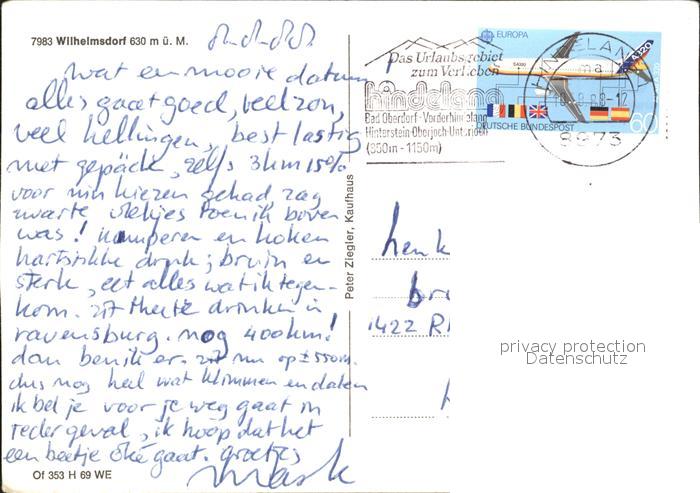 7983 Wilhelmsdorf 630 m ü. M.
8.8.88.
wat een mooie datum
alles gaat goed, veel zon,
veel hellingen, best lastig
met gepäck, zelfs 3 km 15%
voor mn kiezen gehad zag
zwarte vlekjes toen ik boven
was! kamperen en koken
hartstikke druk; bruin en
sterk, eet alles wat ik tegen-
kom. zit thee te drinken in
ravensburg. nog 400 km!
dan ben ik er. zit nu op ± 550 m.
dus nog heel wat klimmen en dalen
ik bel je voor je weg gaat in
ieder geval, ik hoop dat het
een beetje oké gaat. groetjes
Of 353 H 69 WE
Peter Ziegler, Kaufhaus
Das Urlaubsgebiet
zum Verlieben
hindelang
Bad Oberdorf - Vorderhindelang
Hinterstein-Oberjoch-Unterjoch
(850m - 1150m)
EUROPA
A320
DEUTSCHE BUNDESPOST
60
HINDELANG
8973
henk
br
1422 R
privacy protection
Datenschutz